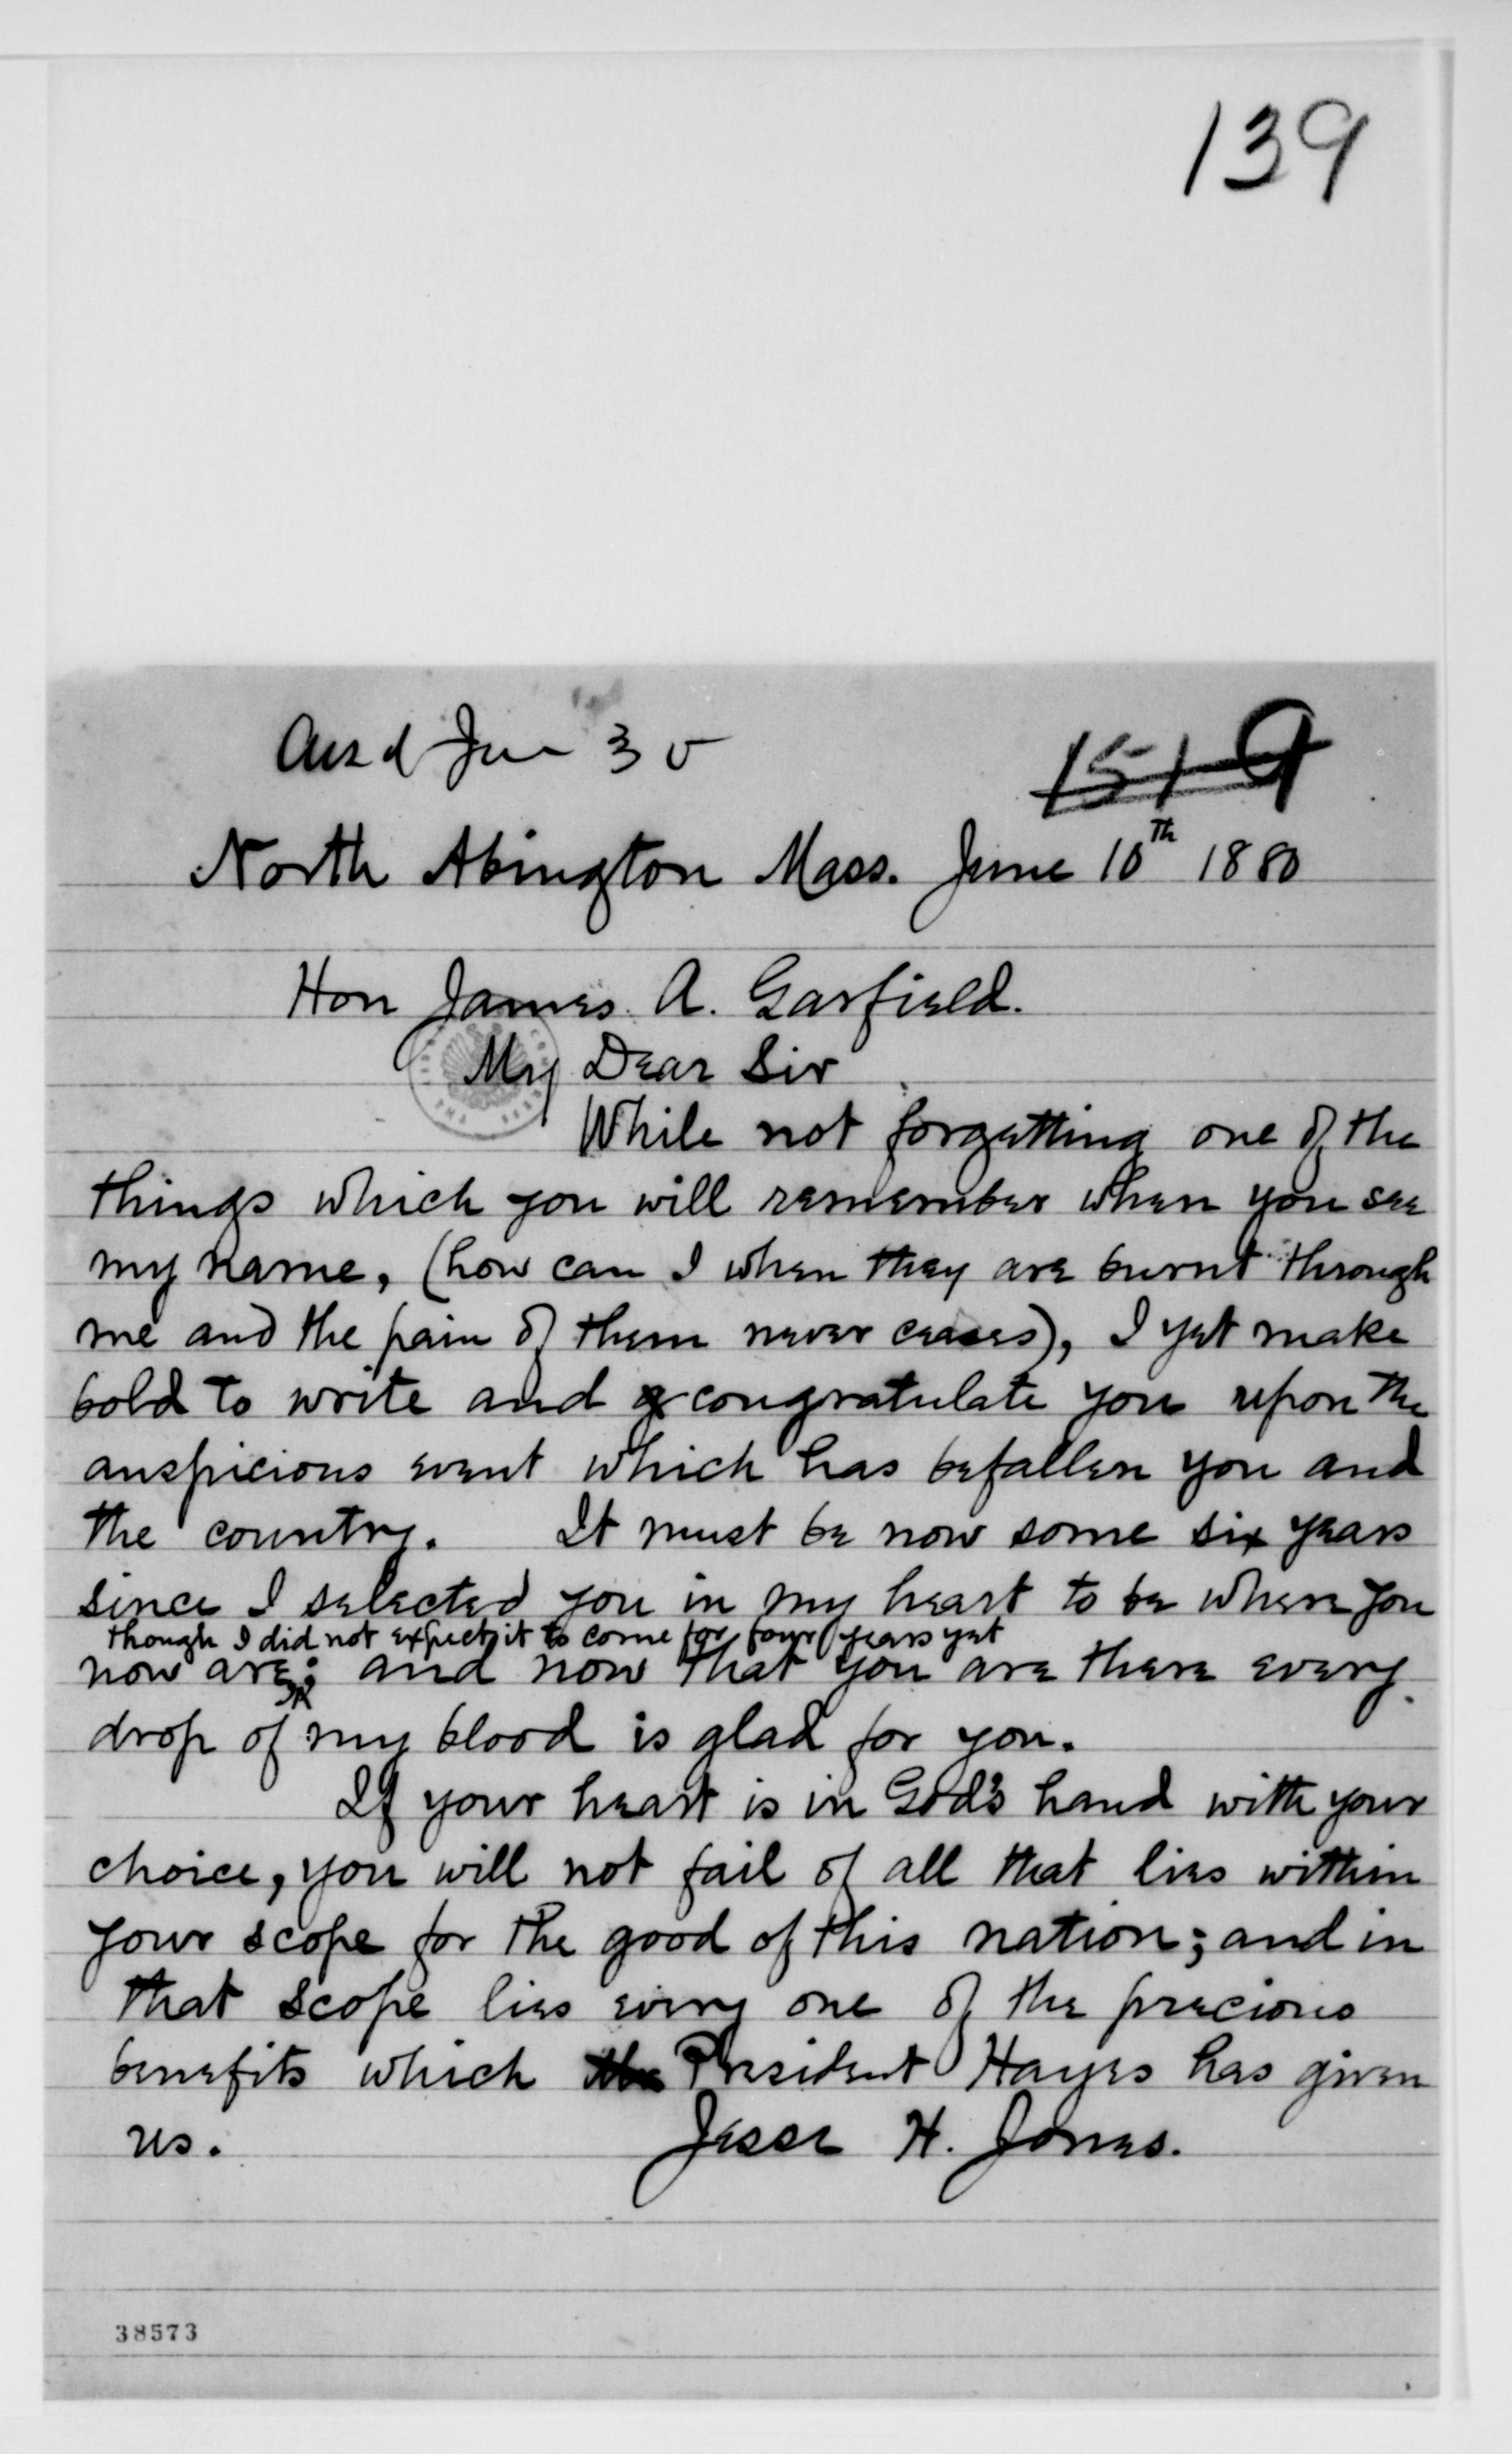 139
Ansd Jun 30
1519
North Abington Mass. June 10th 1880
Hon James A. Garfield.
My Dear Sir
While not forgetting one of the
things which you will remember when you see
my name, (how can I when they are burnt through
me and the pain of them never ceases), I yet make
bold to write and g congratulate you upon the
auspicious event which has befallen you and
the country. It must be now some six years
since I selected you in my heart to be where you
though I did not expect it to come for four years yet
now are; and now that you are there every
drop of my blood is glad for you.
If your heart is in God's hand with your
choice, you will not fail of all that lies within
your scope for the good of this nation; and in
that scope lies every one of the precious
benefits which the President Hayes has given
us. Jesse H. Jones.
38573